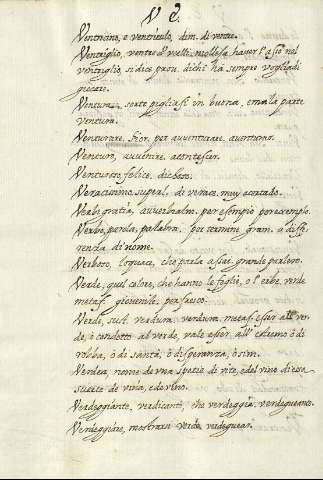 V e.
Ventricino, e ventricolo, dim. di ventre.
Ventriglio, ventre d'ucelli: molleja haver l'asso nel
ventriglio, si dice prov. di chi ha sempre voglia di
giocare.
Ventura, sorte pigliasi in buona, e mala parte
ventura.
Venturare, Fior. per avventurare, aventurar.
Venturo, avvenire, acontescer.
Venturoso, felice, dichoso.
Veracissimo, superl. di verace, muy
Verbi gratia, avverbialm. per esempio por exemplo.
Verbo, parola, palabra, per termine gram. a diffe-
renza di nome.
Verboso, loquace, che parla assai grande parlero.
Verde, quel colore, che hanno le foglie, o l'erbe, verde
metaf. giovenile, per fresco.
Verde, sust. verdura, verdura, metaf. esser all ver-
de, o condotto al verde, vale esser all' estremo ò di
robba, ò di sanità, ò di speranza, ò sim.
Verdea, nome de una spezie di vite, e del vino di essa,
suerte de viña, e de vino.
Verdeggiante, verdicante, che verdeggia, verdegueante.
Verdeggiare, mostrarsi verde, verdeguear.